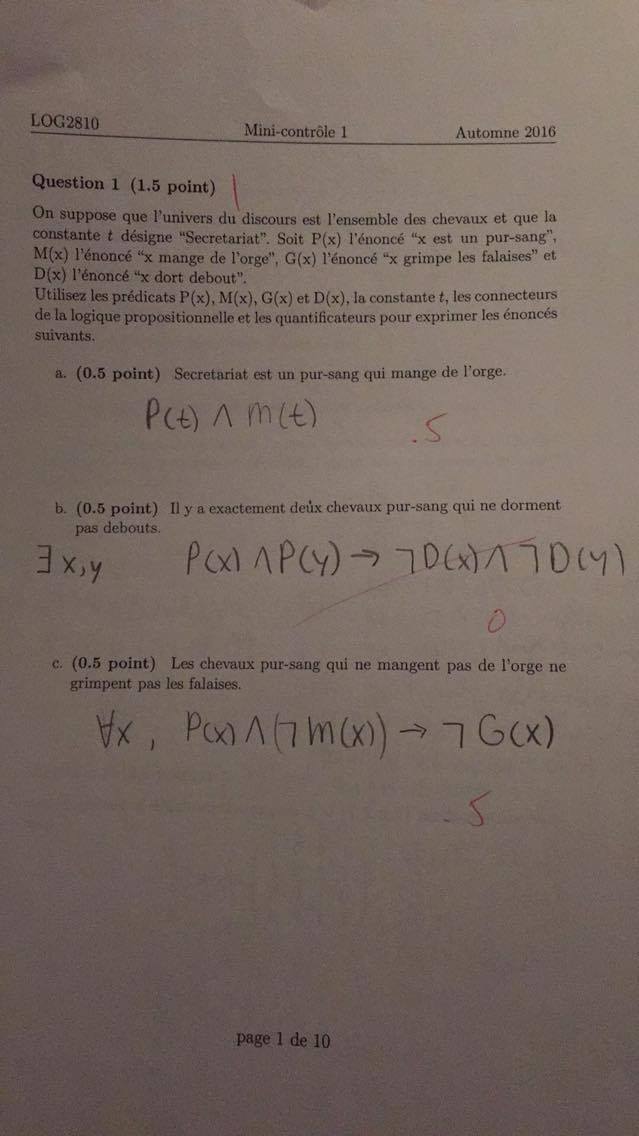 LOG2810 Mini-contrôle 1 Automne 2016
Question 1 (1.5 point) 1
On suppose que l'univers du discours est l'ensemble des chevaux et que la
constante t désigne "Secretariat". Soit P(x) l'énoncé "x est un pur-sang",
M(x) l'énoncé "x mange de l'orge", G(x) l'énoncé "x grimpe les falaises" et
D(x) l'énoncé "x dort debout".
Utilisez les prédicats P(x), M(x), G(x) et D(x), la constante t, les connecteurs
de la logique propositionnelle et les quantificateurs pour exprimer les énoncés
suivants.
a. (0.5 point) Secretariat est un pur-sang qui mange de l'orge.
P(t) ∧ M(t)
.5
b. (0.5 point) Il y a exactement deux chevaux pur-sang qui ne dorment
pas debouts.
∃x,y P(x) ∧ P(y) → ¬D(x) ∧ ¬D(y)
0
c. (0.5 point) Les chevaux pur-sang qui ne mangent pas de l'orge ne
grimpent pas les falaises.
∀x, P(x) ∧ (¬M(x)) → ¬G(x)
.5
page 1 de 10